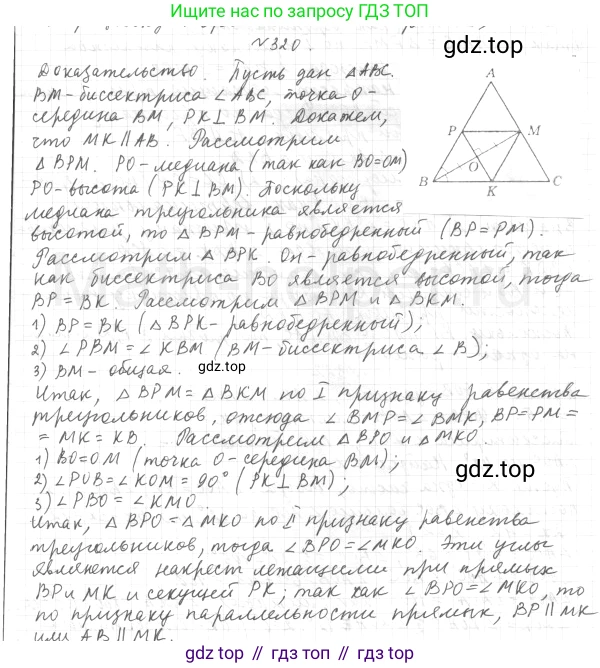 Ищите нас по запросу ГДЗ ТОП
№320.
gdz.top
Доказательство. Пусть дан △ABC.
BM-биссектриса ∠ABC, точка O-
середина BM, PK⊥BM. Докажем,
что MK∥AB. Рассмотрим
△BPM. PO-медиана (так как BO=OM)
PO-высота (PK⊥BM). Поскольку
медиана треугольника является
высотой, то △BPM-равнобедренный (BP=PM).
Рассмотрим △BPK. Он-равнобедренный, так
как биссектриса BO является высотой, тогда
BP=BK. Рассмотрим △BPM и △BKM.
1) BP=BK (△BPK-равнобедренный);
2) ∠PBM=∠KBM (BM-биссектриса ∠B);
3) BM-общая.
gdz.top
Итак, △BPM=△BKM по I признаку равенства
треугольников, отсюда ∠BMP=∠BMK, BP=PM=
=MK=KB. Рассмотрим △BPO и △MKO.
1) BO=OM (точка O-середина BM);
2) ∠POB=∠KOM=90° (PK⊥BM);
gdz.top
3) ∠PBO=∠KMO.
Итак, △BPO=△MKO по II признаку равенства
треугольников, тогда ∠BPO=∠MKO. Эти углы
являются накрест лежащими при прямых
BP и MK и секущей PK; так как ∠BPO=∠MKO, то
по признаку параллельности прямых, BP∥MK
или AB∥MK.
A
P
M
O
B
K
C
gdz.top // гдз.топ // gdz.top // гдз.топ